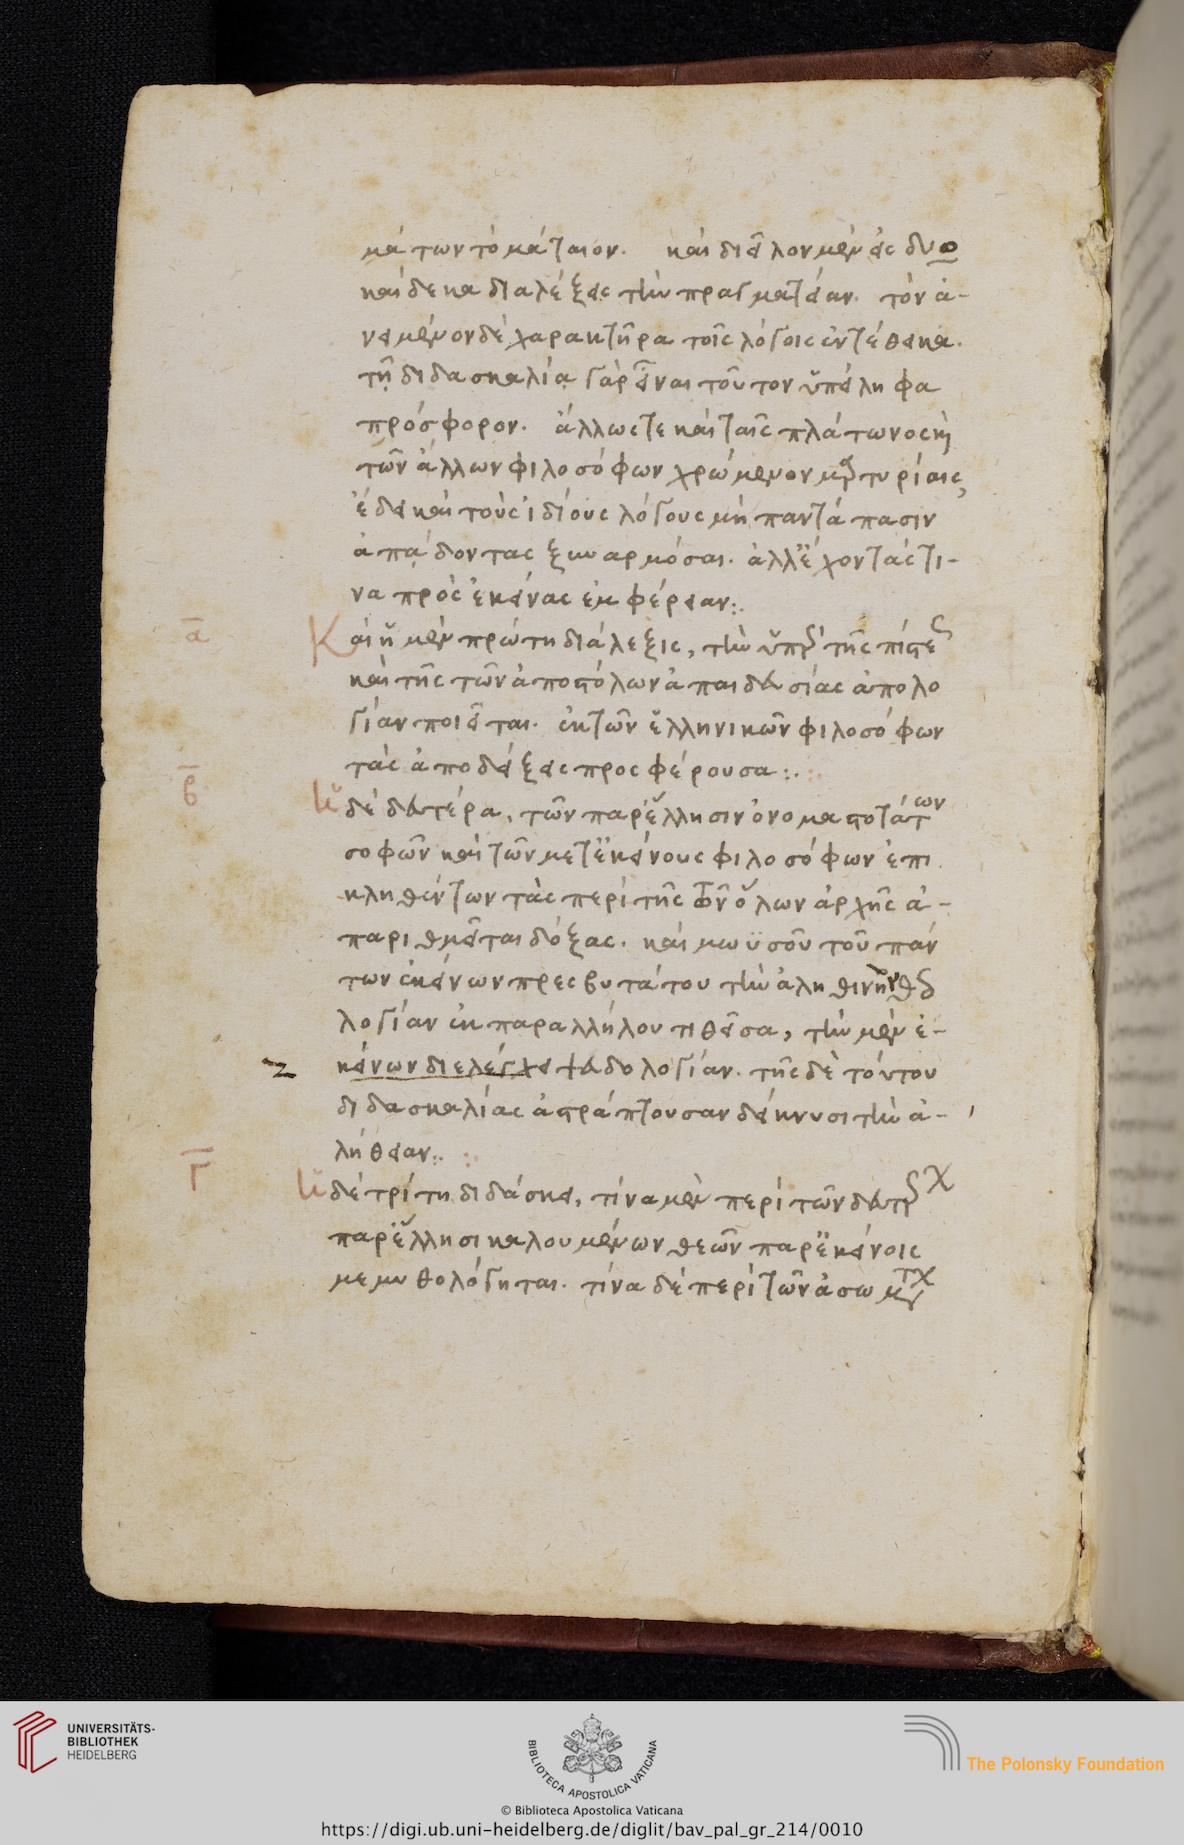 μάτων τὸ μάταιον. καὶ διεῖλον μὲν εἰς δυο
καίδεκα διαλέξεις τὴν πραγματείαν. τὸν ἀ-
νειμένον δὲ χαρακτῆρα τοῖς λόγοις ἐντέθεικα.
τῇ διδασκαλίᾳ γὰρ εἶναι τοῦτον ὑπείληφα
πρόσφορον. ἄλλως τε καὶ ταῖς πλάτωνος κὶ
τῶν ἄλλων φιλοσόφων χρώμενον μρτυρίαις,
ἔδει καὶ τοὺς ἰδίους λόγους μὴ παντάπασιν
ἀπᾴδοντας ξυναρμόσαι. ἀλλ' ἔχοντάς τι-
να πρὸς ἐκείνας ἐμφέρειαν:.
α
Καὶ ἡ μὲν πρώτη διάλεξις, τὴν ὑπὲρ τῆς πίστε
καὶ τῆς τῶν ἀποστόλων ἀπαιδευσίας ἀπολο
γίαν ποιεῖται. ἐκ τῶν ἑλληνικῶν φιλοσόφων
τὰς ἀποδείξεις προσφέρουσα:.
β
ἡ δὲ δευτέρα, τῶν παρ' ἕλλησιν ὀνομαστοτάτων
σοφῶν καὶ τῶν μετ' ἐκείνους φιλοσόφων ἐπι
κληθέντων τὰς περὶ τῆς τῶν ὅλων ἀρχῆς ἀ-
παριθμεῖται δόξας. καὶ μωϋσοῦ τοῦ πάν
των ἐκείνων πρεσβυτάτου τὴν ἀληθινὴν θεο
λογίαν ἐκ παραλλήλου τιθεῖσα, τὴν μὲν ἐ-
κείνων διελέγχει ψευδολογίαν. τῆς δὲ τούτου
διδασκαλίας ἀστράπτουσαν δείκνυσι τὴν ἀ-
λήθειαν:.
Γ
ἡ δὲ τρίτη διδάσκει, τίνα μὲν περὶ τῶν δευτέρων
παρ' ἕλλησι καλουμένων θεῶν παρ' ἐκείνοις
μεμυθολόγηται. τίνα δὲ περὶ τῶν ἀσωμάτων
UNIVERSITÄTS-
BIBLIOTHEK
HEIDELBERG
BIBLIOTECA APOSTOLICA VATICANA
The Polonsky Foundation
© Biblioteca Apostolica Vaticana
https://digi.ub.uni-heidelberg.de/diglit/bav_pal_gr_214/0010